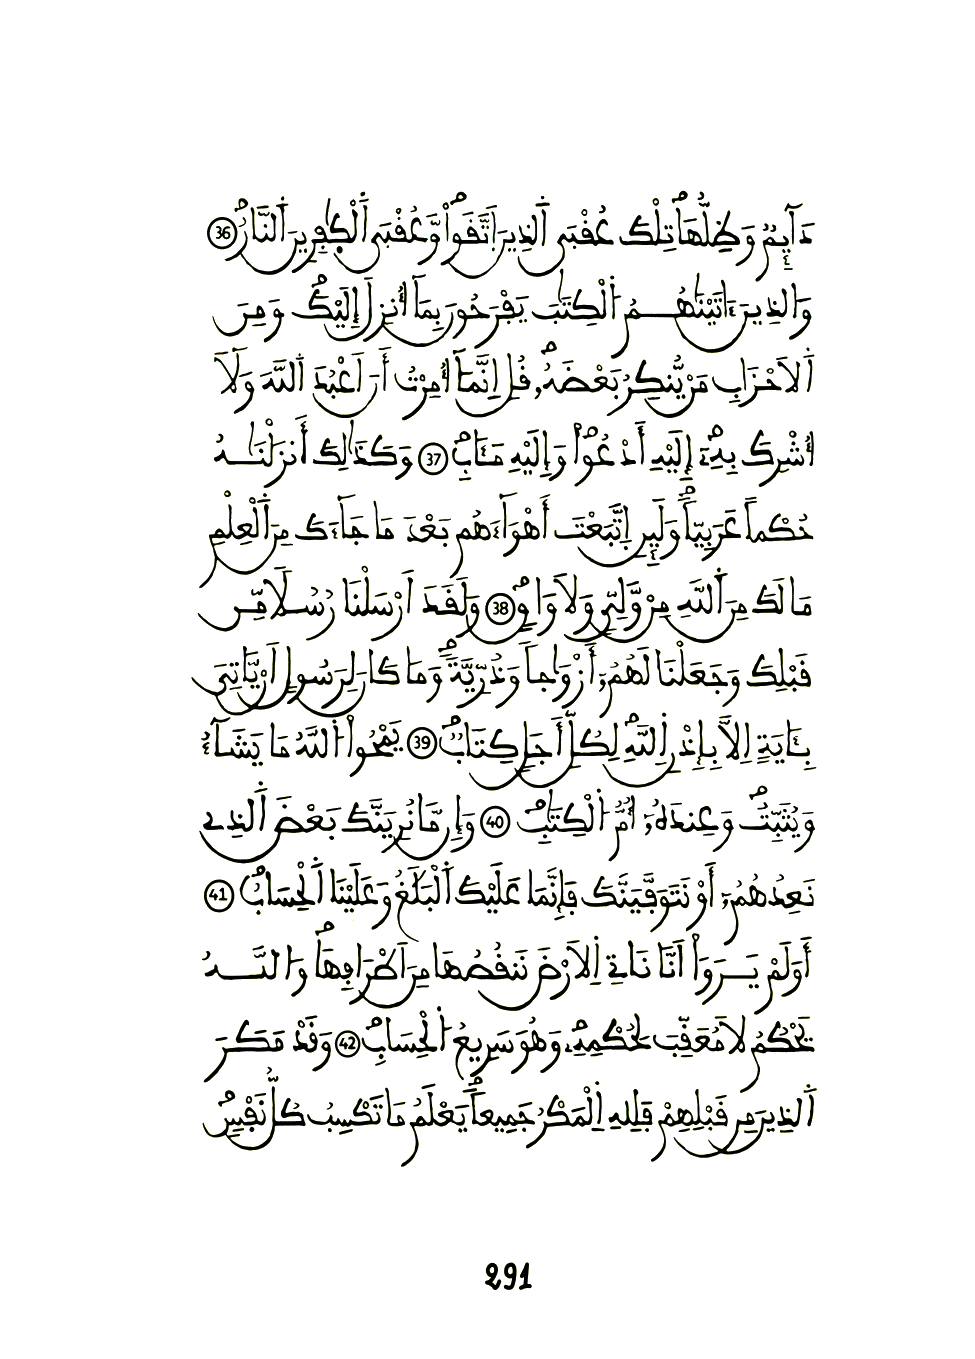 دَآيِمٞ وَظِلُّهَاۖ تِلْكَ عُقْبَى اَ۬لذِينَ اَ۪تَّقَواْۖ وَّعُقْبَى اَ۬لْكٰ۪فِرِينَ اَ۬لنَّارُۖ 36
وَالذِينَ ءَاتَيْنَٰهُمُ اُ۬لْكِتَٰبَ يَفْرَحُونَ بِمَآ أُنزِلَ إِلَيْكَۖ وَمِنَ
اَ۬لَاحْزَابِ مَنْ يُّنكِرُ بَعْضَهُۥۖ قُلِ اِنَّمَآ أُمِرْتُ أَنَ اَعْبُدَ اَ۬للَّهَ وَلَآ
أُشْرِكَ بِهِۦٓۖ إِلَيْهِ أَدْعُواْۖ وَإِلَيْهِ مَـَٔابِۖ 37 وَكَذَٰلِكَ أَنزَلْنَٰهُ
حُكْماً عَرَبِيّاٗۖ وَلَئِنِ اِ۪تَّبَعْتَ أَهْوَآءَهُم بَعْدَ مَا جَآءَكَ مِنَ اَ۬لْعِلْمِ
مَا لَكَ مِنَ اَ۬للَّهِ مِنْ وَّلِيّٖ وَلَا وَاقٖۖ 38 وَلَقَدَ اَرْسَلْنَا رُسُلاٗ مِّن
قَبْلِكَ وَجَعَلْنَا لَهُمُۥٓ أَزْوَٰجاٗ وَذُرِّيَّةٗۖ وَمَا كَانَ لِرَسُولٍ اَنْ يَّاتِيَ
بِـَٔايَةٍ اِلَّا بِإِذْنِ اِ۬للَّهِۖ لِكُلِّ أَجَلٖ كِتَابٞۖ 39 يَمْحُواْ اُ۬للَّهُ مَا يَشَآءُ
وَيُثَبِّتُۖ وَعِندَهُۥٓ أُمُّ اُ۬لْكِتَٰبِۖ 40 وَإِن مَّا نُرِيَنَّكَ بَعْضَ اَ۬لذِے
نَعِدُهُمُۥٓ أَوْ نَتَوَفَّيَنَّكَ فَإِنَّمَا عَلَيْكَ اَ۬لْبَلَٰغُ وَعَلَيْنَا اَ۬لْحِسَابُۖ 41
أَوَلَمْ يَرَوَاْ اَنَّا نَاتِے اِ۬لَارْضَ نَنقُصُهَا مِنَ اَطْرَافِهَاۖ وَاللَّهُ
يَحْكُمُ لَا مُعَقِّبَ لِحُكْمِهِۦۖ وَهُوَ سَرِيعُ اُ۬لْحِسَابِۖ 42 وَقَدْ مَكَرَ
اَ۬لذِينَ مِن قَبْلِهِمْ فَلِلهِ اِ۬لْمَكْرُ جَمِيعاٗۖ يَعْلَمُ مَا تَكْسِبُ كُلُّ نَفْسٖۖ
291